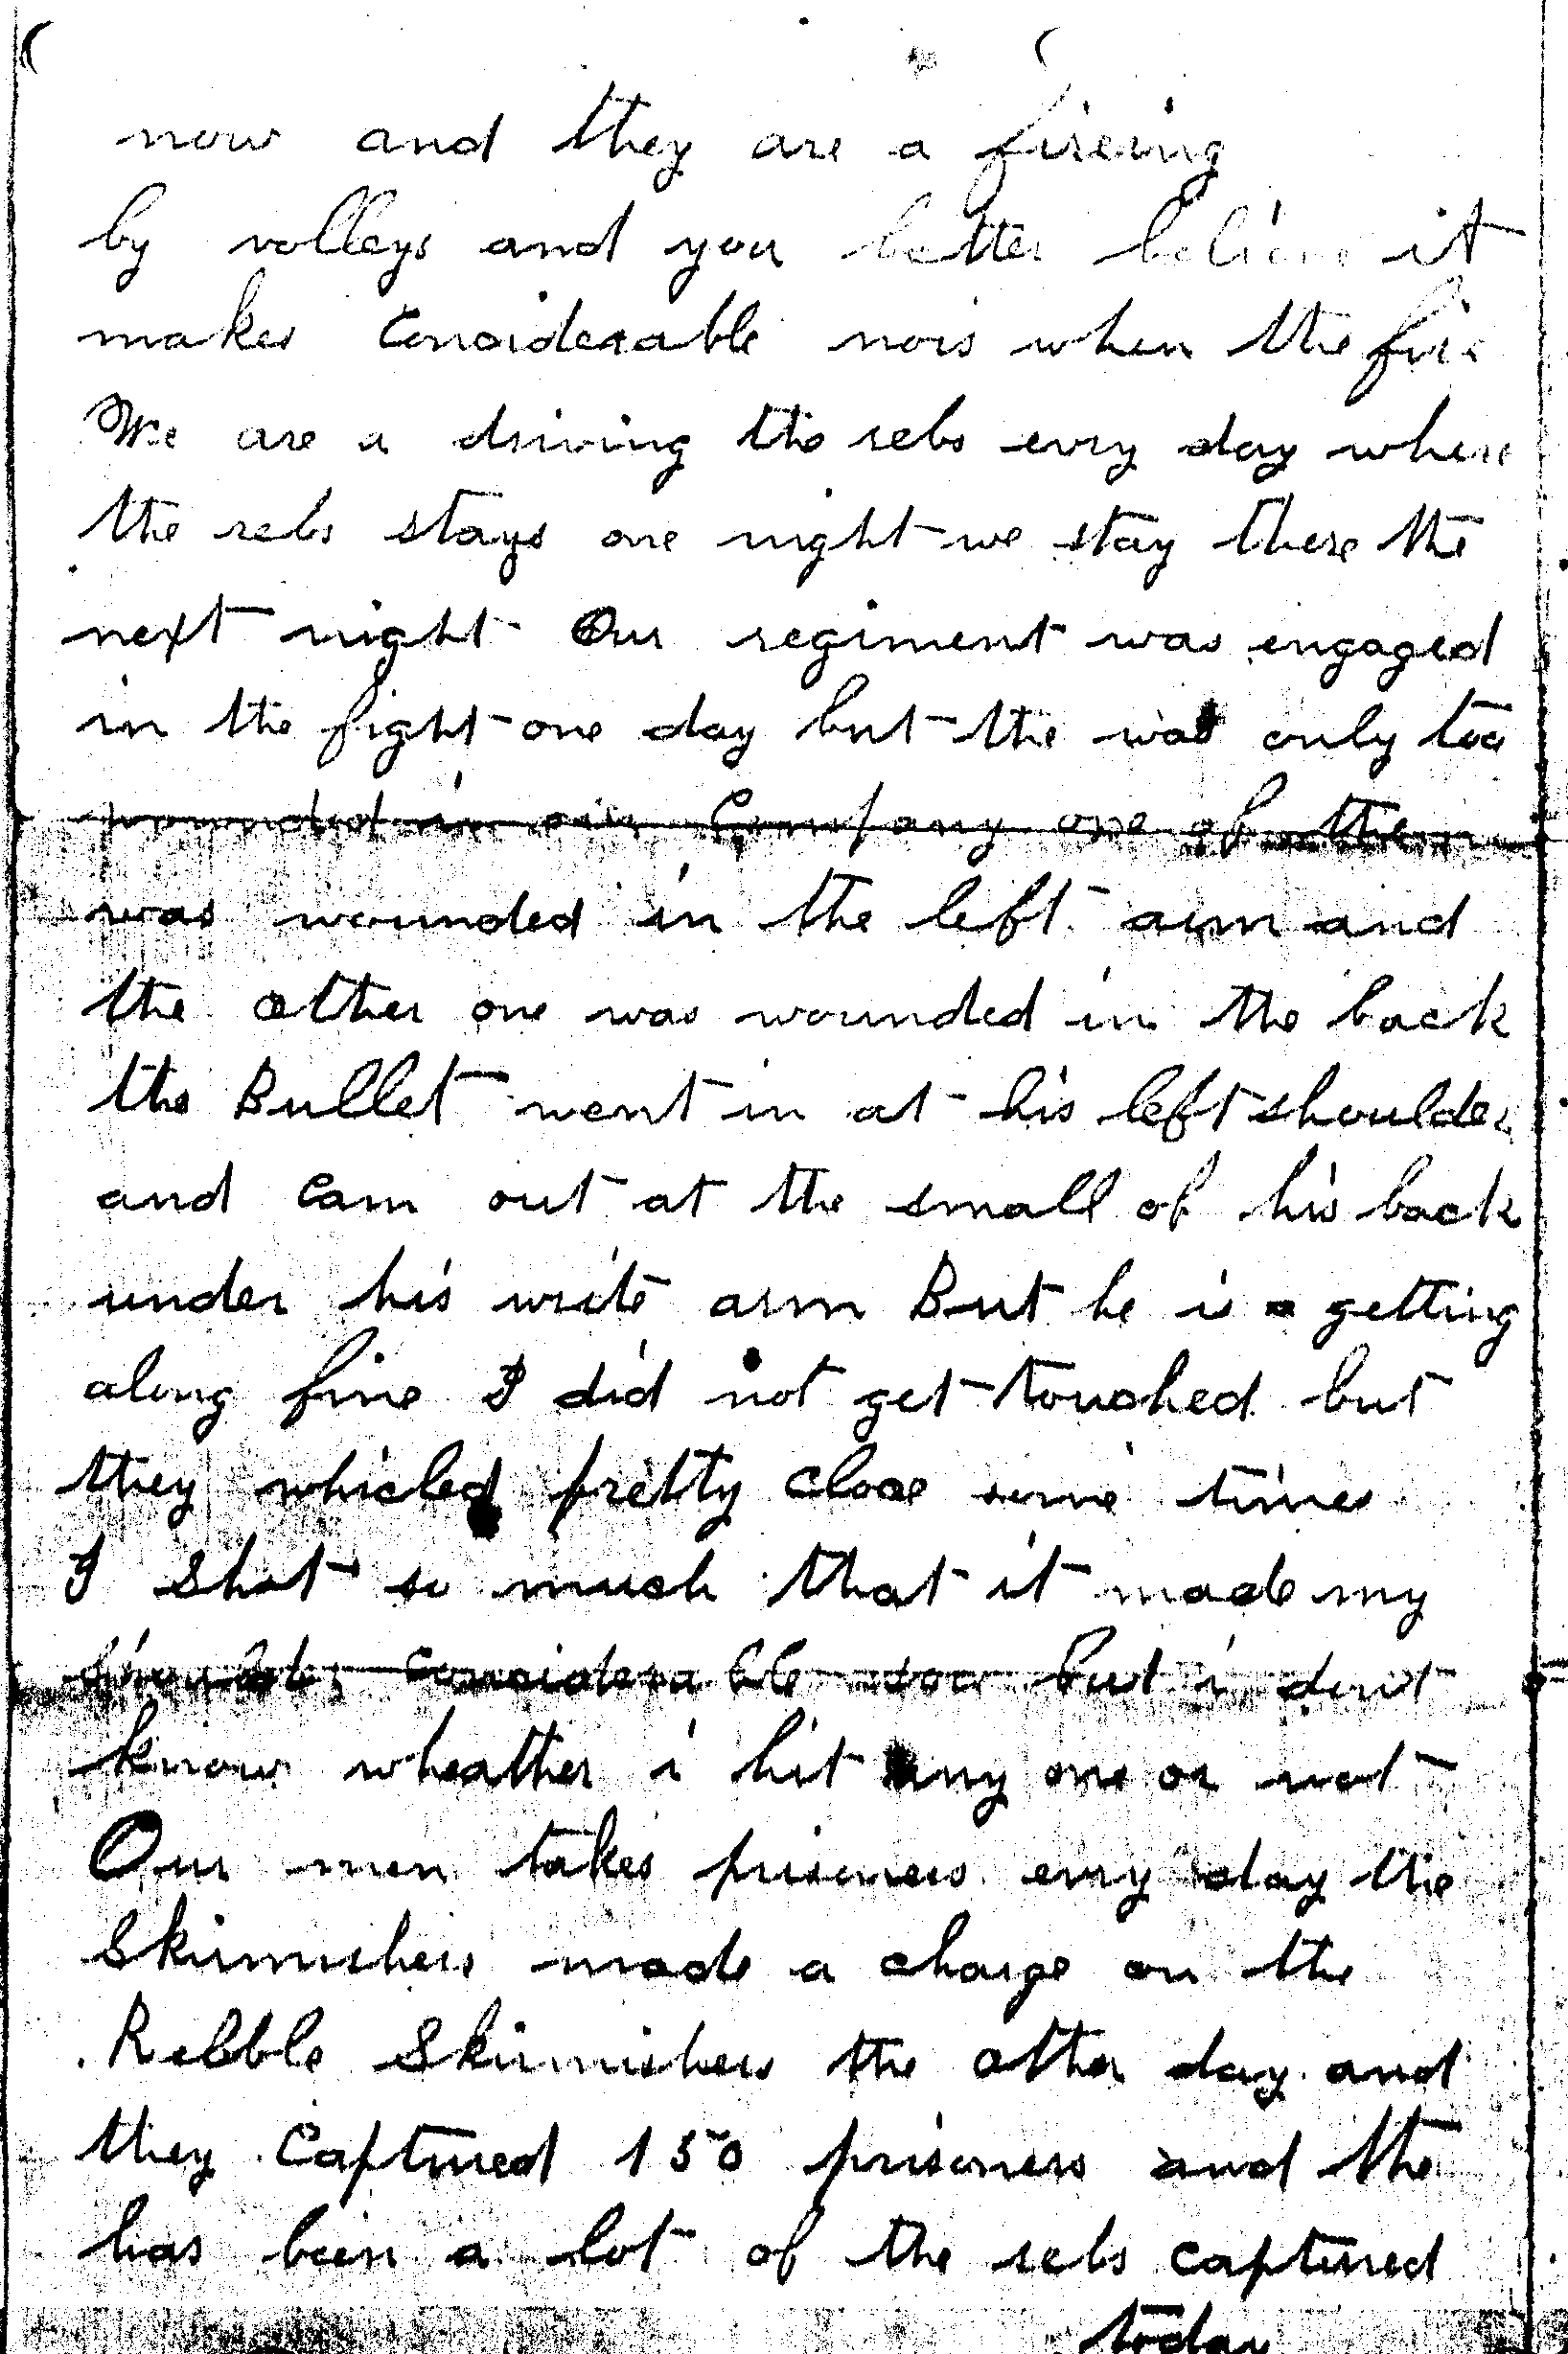 now and they are a fireing
by volleys and you better believe it
makes Considerable nois when the fire
We are a driving the rebs evry day where
the rebs stays one night we stay there the
next night Our regiment was engaged
in the fight one day but the was only too
wounded in our Company one of them
was wounded in the left arm and
the other one was wounded in the back
the Bullet went in at his left shoulder
and cam out at the small of his back
under his write arm But he is a getting
along fine I did not get touched but
they whisled pretty close some times
I Shot so much that it made my
shoulder considerable soar but i dont
know wheather i hit any one or not
Our men takes prisoners evry day the
Skirmishers made a charge on the
Rebble Skirmishers the other day and
they Captured 150 prisoners and the
has been a lot of the rebs captured
today